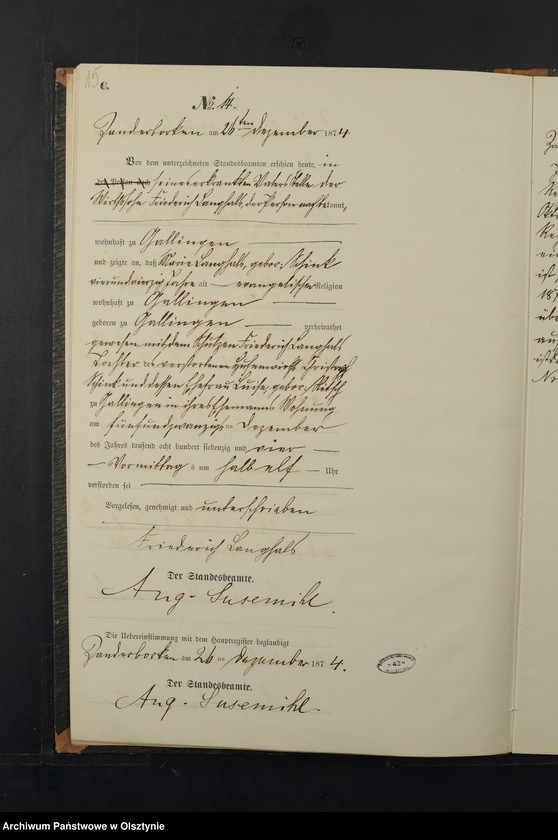 15
C.
No. 14.
Zanderborken am 26ten Dezember 1874.
Vor dem unterzeichneten Standesbeamten erschien heute, in
seines erkrankten Vaters Stelle der
Wirthssohn Friederich Langhals, der Person nach bekannt,
wohnhaft zu Gallingen
und zeigte an, daß Marie Langhals, gebor: Schink
vierundvierzig Jahre alt evangelischer Religion
wohnhaft zu Gallingen
geboren zu Gallingen verheirathet
gewesen mit dem Schulzen Friederich Langhals
Tochter des verstorbenen Christoph
Schink und dessen Ehefrau Luise, gebor:
zu Gallingen in ihres Ehemannes Wohnung
am fünfundzwanzigsten Dezember
des Jahres tausend acht hundert siebenzig und vier
Vormittag s um halb elf Uhr
verstorben sei
Vorgelesen, genehmigt und unterschrieben
Friederich Langhals
Der Standesbeamte.
Aug. Susemihl.
Die Uebereinstimmung mit dem Hauptregister beglaubigt
Zanderborken am 26 ten Dezember 1874.
Der Standesbeamte.
Aug. Susemihl.
42
Archiwum Państwowe w Olsztynie